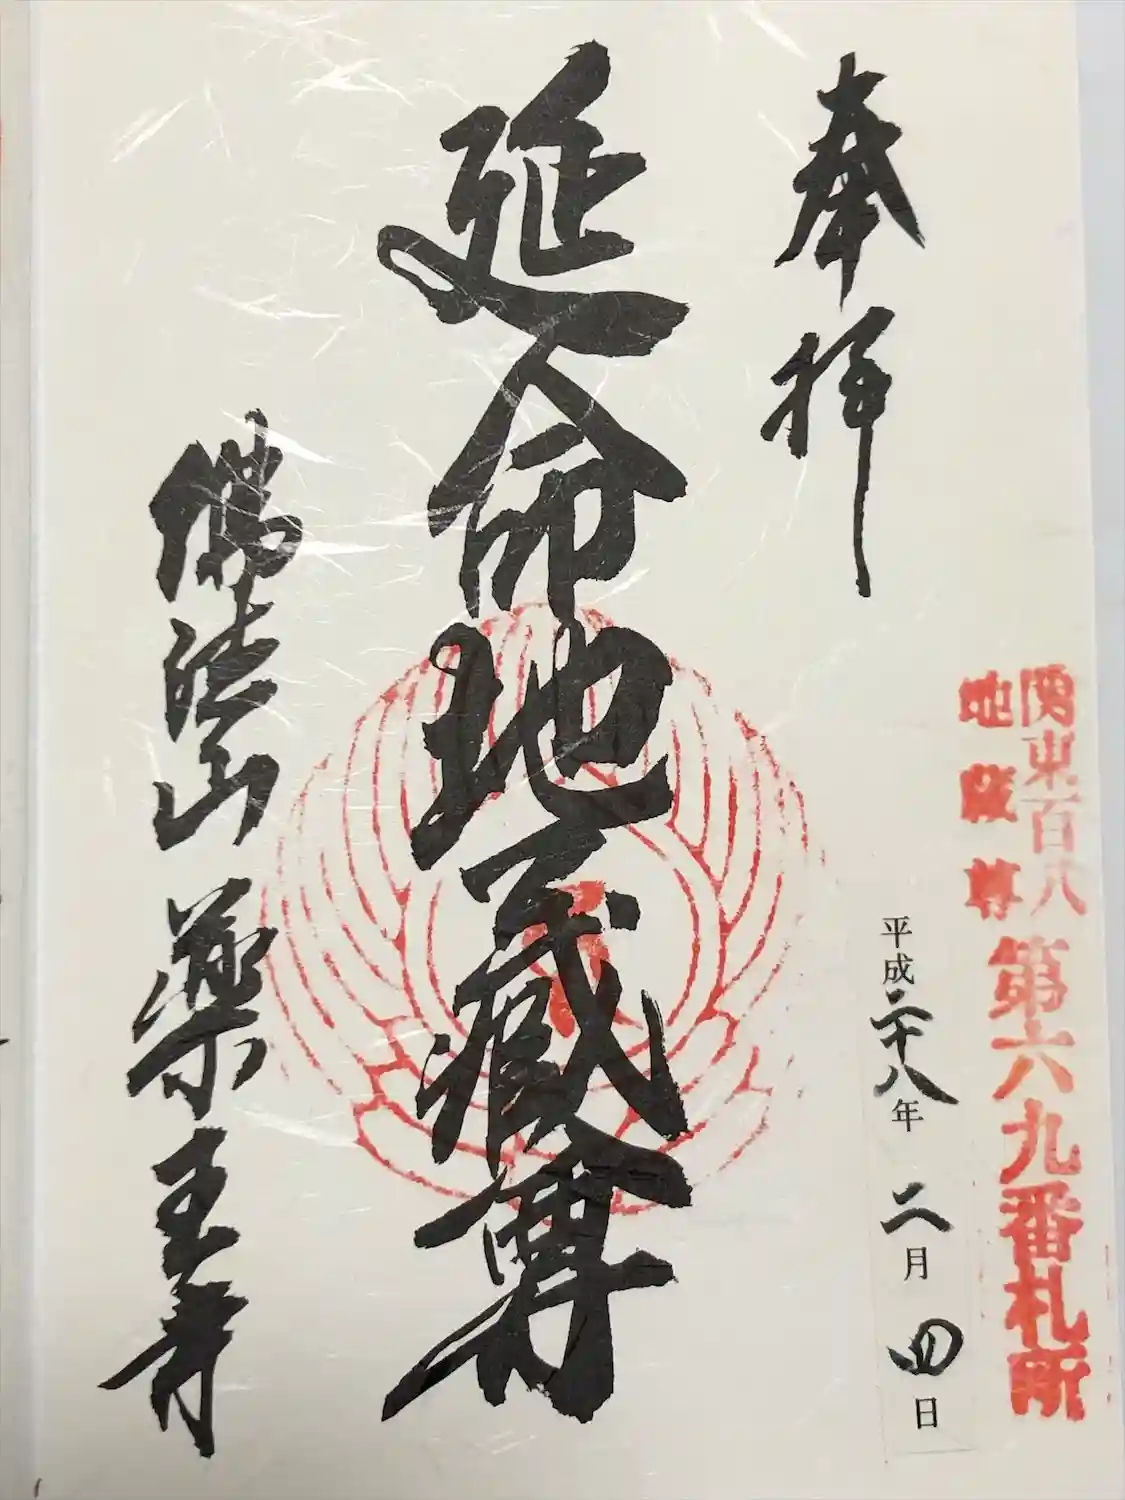 関東百八
地蔵尊
第六九番札所
奉拝
平成二十八年 二月 四日
延命地蔵尊
佛法山 薬王寺